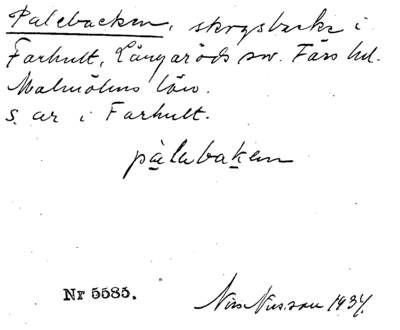 Palebacken, skogsbacke i
Farhult, Långaröds sn. Färs hd.
Malmöhus län.
s. ar i Farhult.
pàlebaken
Nr 5585.
Nils Nilsson 1934.